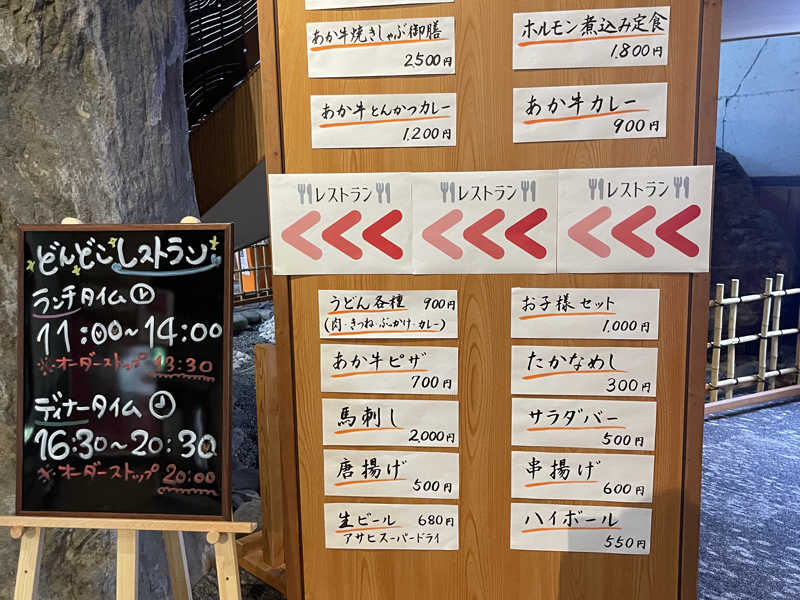 どんどこレストラン
ランチタイム
11:00〜14:00
※オーダーストップ 13:30
ディナータイム
16:30〜20:30
※オーダーストップ 20:00
あか牛焼きしゃぶ御膳
2,500円
ホルモン煮込み定食
1,800円
あか牛とんかつカレー
1,200円
あか牛カレー
900円
レストラン
レストラン
レストラン
うどん各種 900円
(肉・きつね・ぶっかけ・カレー)
お子様セット
1,000円
あか牛ピザ
700円
たかなめし
300円
馬刺し
2,000円
サラダバー
500円
唐揚げ
500円
串揚げ
600円
生ビール 680円
アサヒスーパードライ
ハイボール
550円